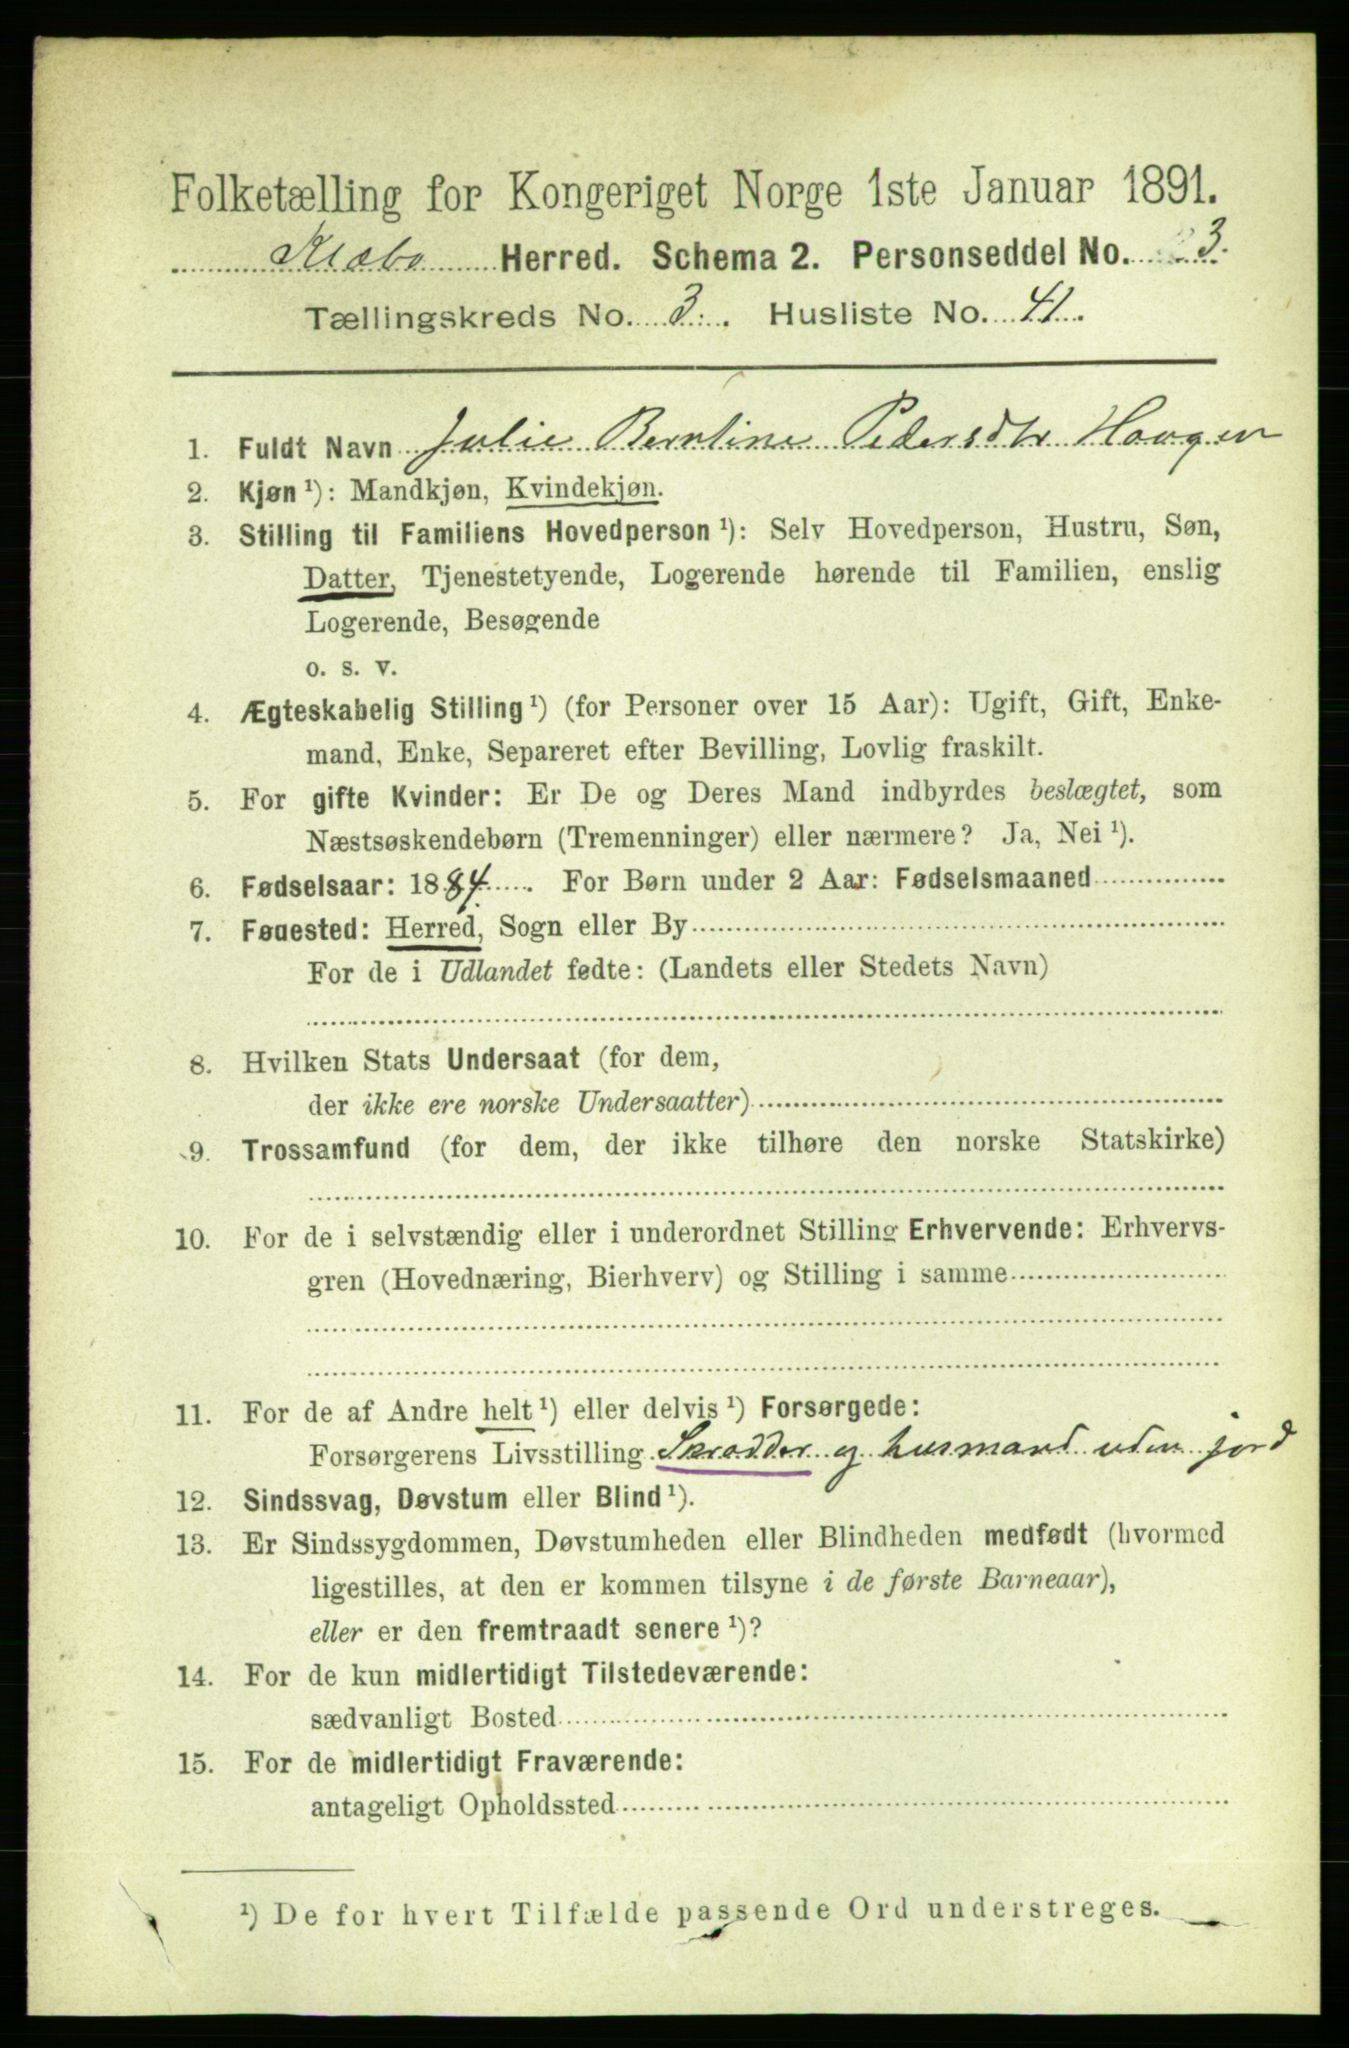 Folketælling for Kongeriget Norge 1ste Januar 1891.
Klæbo Herred. Schema 2. Personseddel No. 3.
Tællingskreds No. 3. Husliste No. 41.
1. Fuldt Navn Julie Berntine Pedersdtr Haugen
2. Kjøn ¹): Mandkjøn, Kvindekjøn.
3. Stilling til Familiens Hovedperson ¹): Selv Hovedperson, Hustru, Søn,
Datter, Tjenestetyende, Logerende hørende til Familien, enslig
Logerende, Besøgende
o. s. v.
4. Ægteskabelig Stilling ¹) (for Personer over 15 Aar): Ugift, Gift, Enke-
mand, Enke, Separeret efter Bevilling, Lovlig fraskilt.
5. For gifte Kvinder: Er De og Deres Mand indbyrdes beslægtet, som
Næstsøskendebørn (Tremenninger) eller nærmere? Ja, Nei ¹).
6. Fødselsaar: 1884. For Børn under 2 Aar: Fødselsmaaned
7. Fødested: Herred, Sogn eller By
For de i Udlandet fødte: (Landets eller Stedets Navn)
8. Hvilken Stats Undersaat (for dem,
der ikke ere norske Undersaatter)
9. Trossamfund (for dem, der ikke tilhøre den norske Statskirke)
10. For de i selvstændig eller i underordnet Stilling Erhvervende: Erhvervs-
gren (Hovednæring, Bierhverv) og Stilling i samme
11. For de af Andre helt ¹) eller delvis ¹) Forsørgede:
Forsørgerens Livsstilling Skrædder og husmand uden jord
12. Sindssvag, Døvstum eller Blind ¹).
13. Er Sindssygdommen, Døvstumheden eller Blindheden medfødt (hvormed
ligestilles, at den er kommen tilsyne i de første Barneaar),
eller er den fremtraadt senere ¹)?
14. For de kun midlertidigt Tilstedeværende:
sædvanligt Bosted
15. For de midlertidigt Fraværende:
antageligt Opholdssted
¹) De for hvert Tilfælde passende Ord understreges.